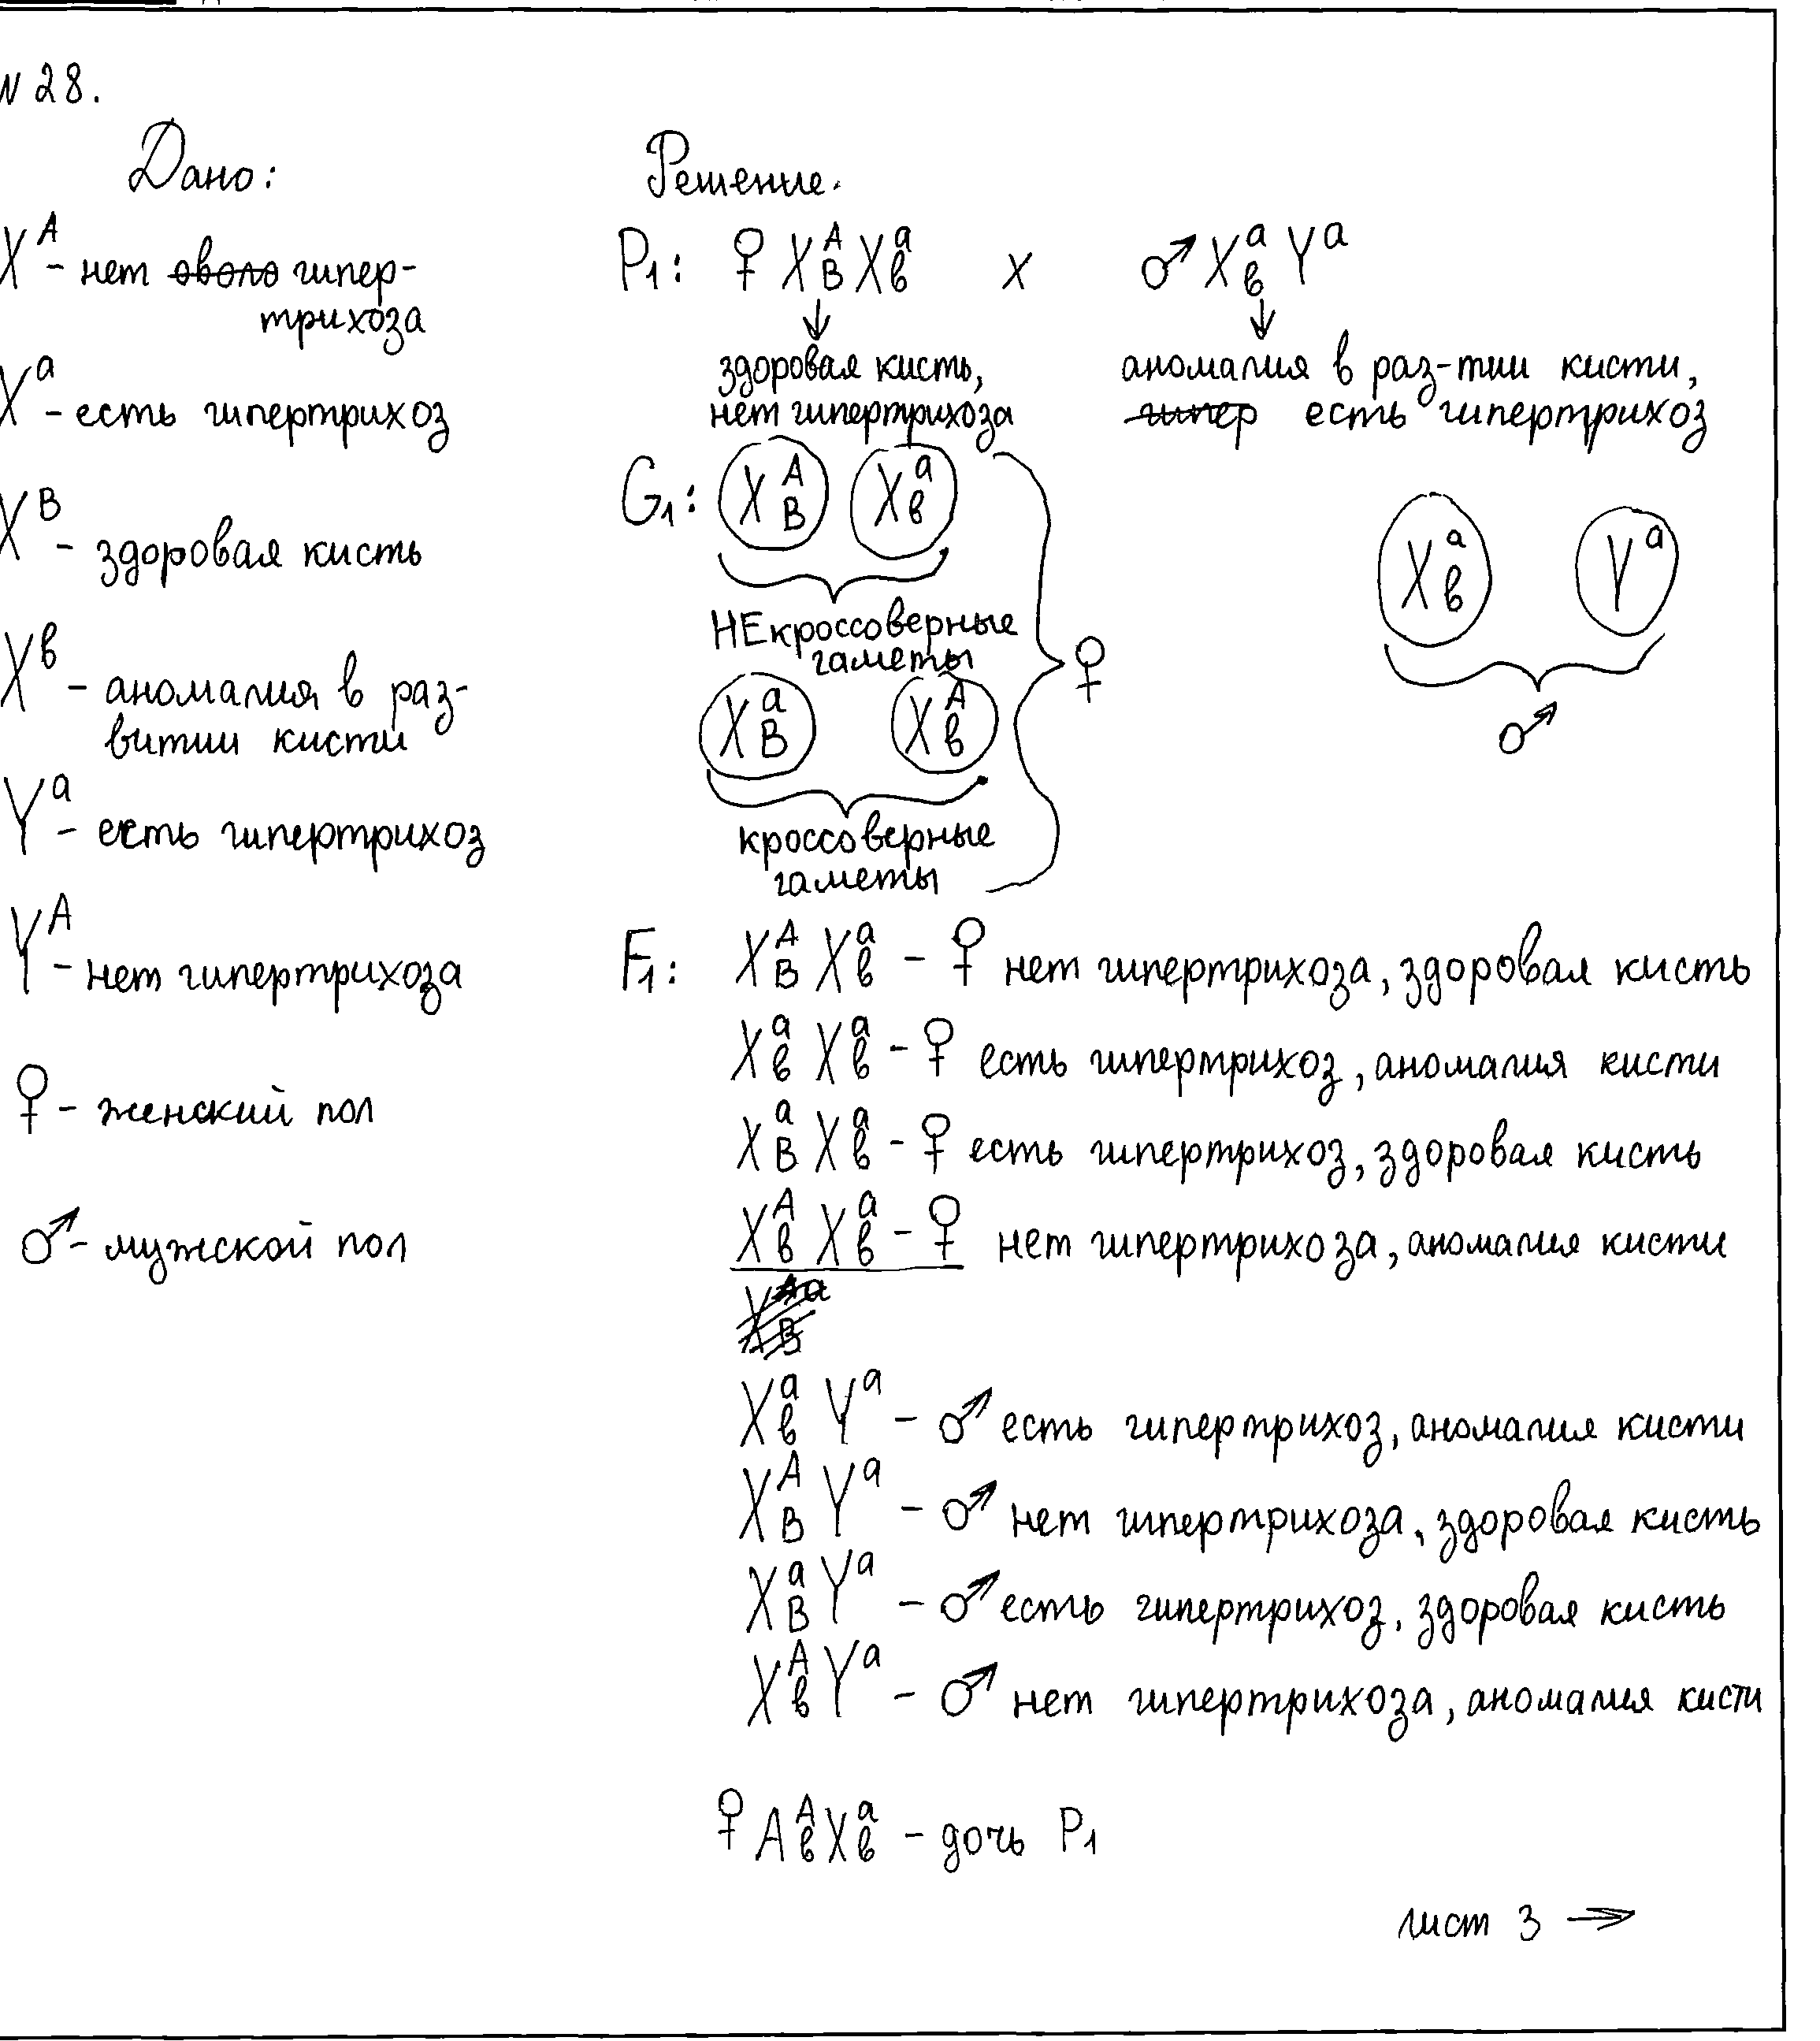 N 28.
Дано:
X^A - нет около гипер-
трихоза
X^a - есть гипертрихоз
X^B - здоровая кисть
X^в - аномалия в раз-
витии кисти
Y^a - есть гипертрихоз
Y^A - нет гипертрихоза
♀ - женский пол
♂ - мужской пол
Решение.
P₁: ♀ X^A_B X^a_в x ♂ X^a_в Y^a
↓ ↓
здоровая кисть, аномалия в раз-тии кисти,
нет гипертрихоза гипер есть гипертрихоз
G₁: X^A_B X^a_в X^a_в Y^a
НЕкроссоверные
гаметы
♀
X^a_B X^A_в
♂
кроссоверные
гаметы
F₁: X^A_B X^a_в - ♀ нет гипертрихоза, здоровая кисть
X^a_в X^a_в - ♀ есть гипертрихоз, аномалия кисти
X^a_B X^a_в - ♀ есть гипертрихоз, здоровая кисть
X^A_в X^a_в - ♀ нет гипертрихоза, аномалия кисти
X^a_в Y^a - ♂ есть гипертрихоз, аномалия кисти
X^A_B Y^a - ♂ нет гипертрихоза, здоровая кисть
X^a_B Y^a - ♂ есть гипертрихоз, здоровая кисть
X^A_в Y^a - ♂ нет гипертрихоза, аномалия кисти
♀ A^A_в X^a_в - дочь P₁
лист 3 →